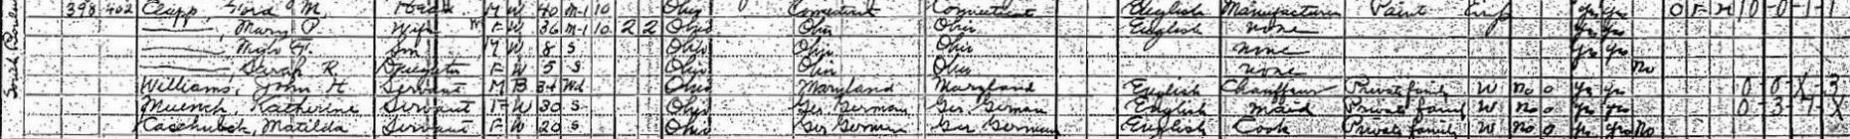 398 402 Clapp, M. Head M W 40 M-1 10 Ohio Connecticut Connecticut English Manufacturer Paint Emp Yes Yes O F H 10-0-1-1
——, Mary P. Wife F W 36 M-1 10 2 2 Ohio Ohio Ohio English none Yes Yes
——, Son M W 8 S Ohio Ohio Ohio none Yes Yes
——, Sarah R. Daughter F W 5 S Ohio Ohio Ohio none No
Williams, John H Servant M B 34 Wd Ohio Maryland Maryland English Chauffeur Private family W No 0 Yes Yes 0-0-X-3
Muench, Katherine Servant F W 30 S Ohio Ger German Ger German English maid Private family W No 0 Yes Yes 0-3-7-X
Matilda Servant F W 20 S Ohio Ger German Ger German English Cook Private family W No 0 Yes Yes No